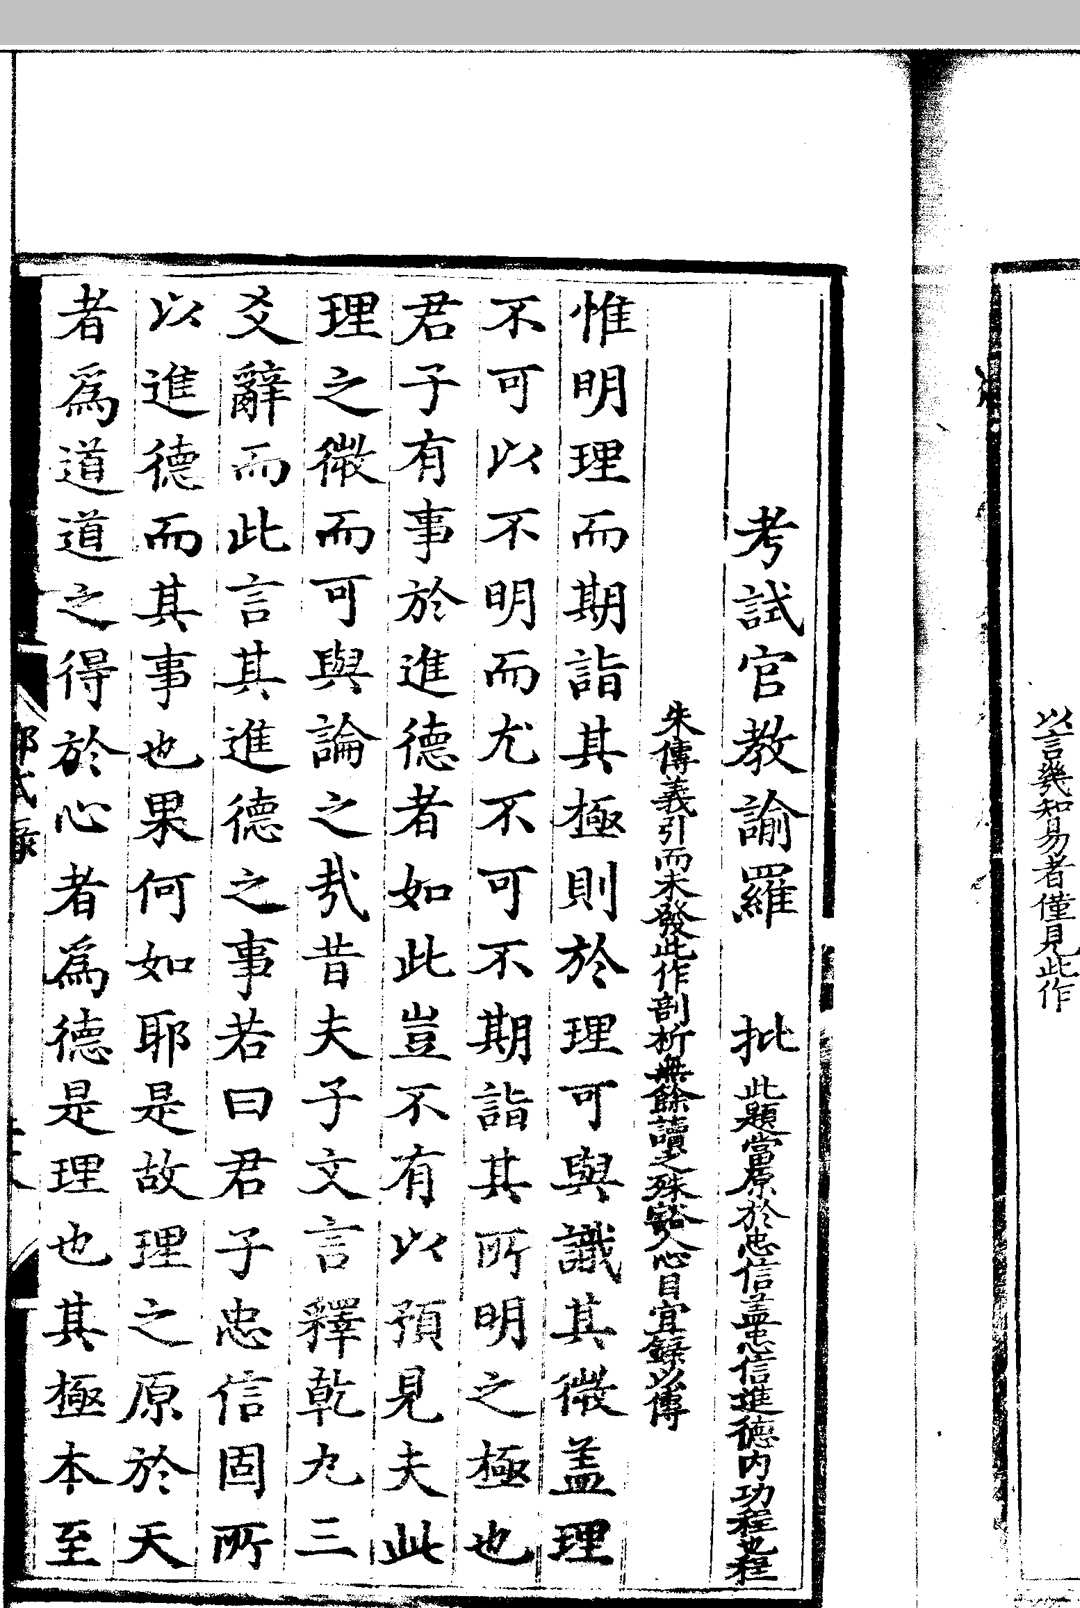 以言幾知易者僅見此作
考試官教諭羅　批此題當原於忠信盖忠信進德内功程也程
朱傳義引而未發此作剖析無餘讀之殊豁人心目宜錄以傳
惟明理而期詣其極則於理可與識其微盖理
不可以不明而尤不可不期詣其所明之極也
君子有事於進德者如此豈不有以預見夫此
理之微而可與論之㢤昔夫子文言釋乾九三
爻辭而此言其進德之事若曰君子忠信固所
以進德而其事也果何如耶是故理之原於天
者爲道道之得於心者爲德是理也其極本至